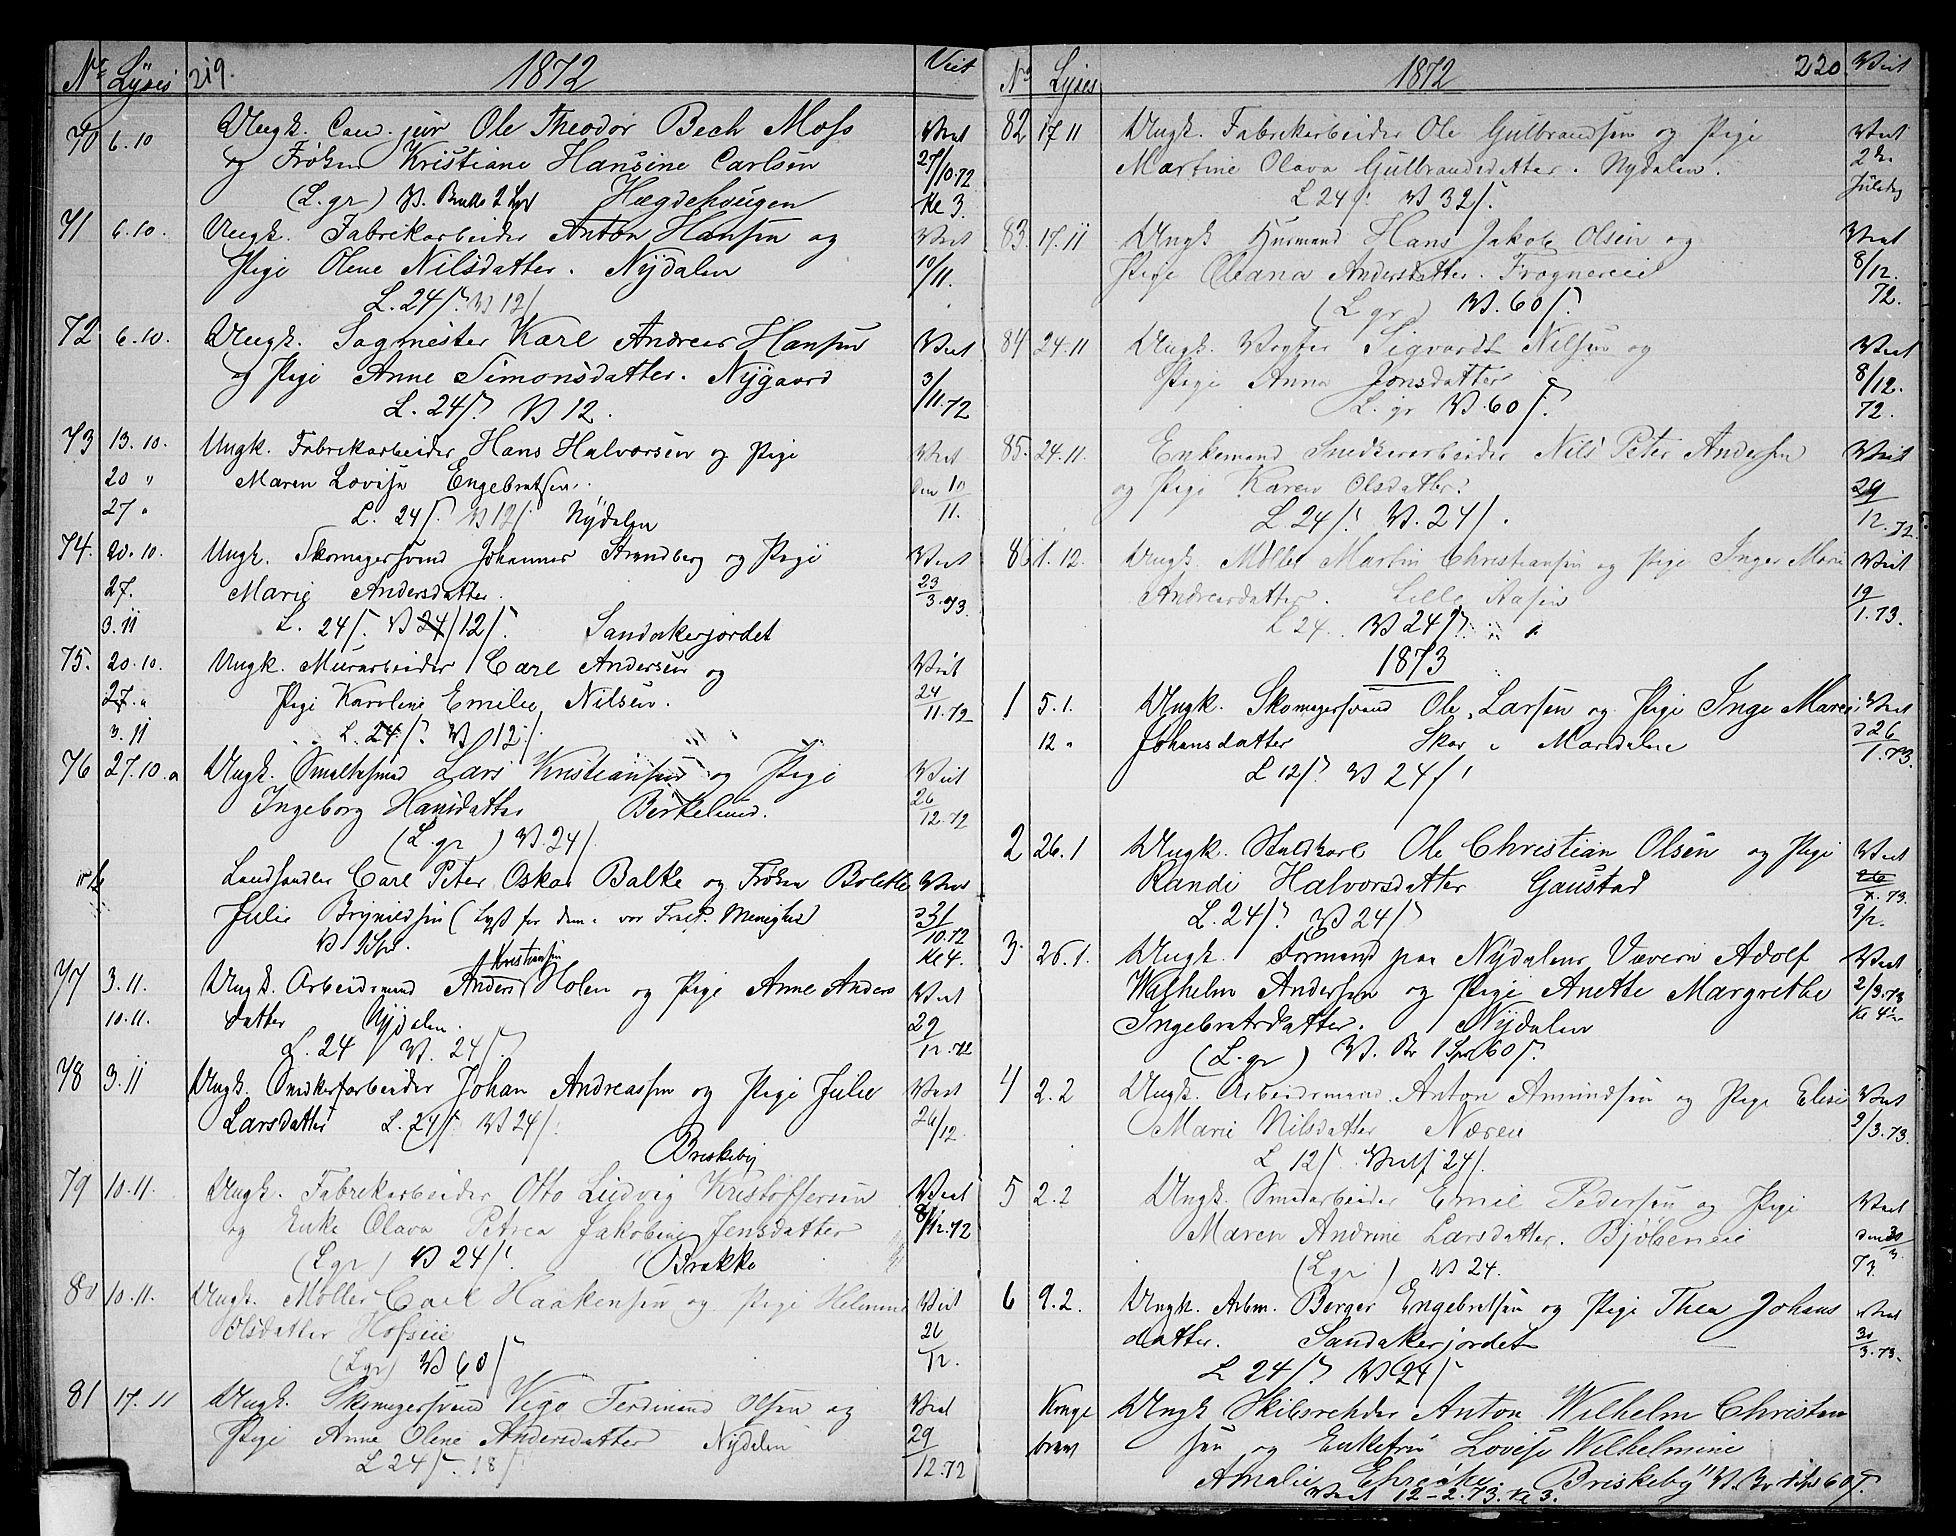 Nr Lyses 219. 1872 Viet
70 6.10 Ungk. Cand. jur Ole Theodor Bech Moss Viet
og Frøken Kristiane Hansine Carlsen 27/10.72
(L. gr) Hægdehougen Kl 3.
71 6.10. Ungk. Fabrikarbeider Anton Hansen og Viet
Pige Olene Nilsdatter. Nydalen 10/11.
L. 24 ẞ. V 12/
72 6.10. Ungk. Sagmester Karl Andreas Hansen Viet
og Pige Anne Simonsdatter. Nygaard 3/11.72
L. 24 ẞ V 12.
73 13.10. Ungk. Fabrikarbeider Hans Halvorsen og Pige Viet
20 " Maren Lovise Engebretsen. den 10/11.
27 " L. 24 ẞ. V 12/. Nydalen
74. 20.10. Ungk. Skomagersvend Johannes Strandberg og Pige Viet
27. Marie Andersdatter. 23/3.73.
3.11 L. 24 ẞ. V 24/12/. Sandakerjordet
75. 20.10. Ungk. Murarbeider Carl Andersen og Viet
27. " Pige Karoline Emilie Nilsen. 24/11.72
3.11 L. 24 ẞ. V 12/.
76 27.10. Ungk. Lars Kristiansen og Pige Viet
Ingeborg Hansdatter Berkelund. 26/12.72
(L. gr ) V. 24/
Landhandler Carl Peter Oskar Balke og Frøken Bolette Viet
Julie Brynildsen (Lyst for dem i vor Menighed) 31/10.72
Kl 4.
Kristiansen
77 3.11. Ungk. Arbeidsmand Anders Holen og Pige Anne Anders Viet
10.11. datter Nydalen. 29/12.72
L. 24 V. 24 ẞ.
78 3.11 Ungk. Snedkerarbeider Johan Andreassen og Pige Julie Viet
Larsdatter L. 24 ẞ V 24/. 26/12.
Briskeby
79 10.11. Ungk. Fabrikarbeider Otto Ludvig Kristoffersen Viet
og Enke Olava Petrea Jakobine Jensdatter 8/12.72
(L gr) V 24/. Brakke
80 10.11. Ungk. Møller Carl Haakensen og Pige Helmine Viet
Olsdatter Hofseie 26/12.
(L gr) V 60 ẞ
81 17.11 Ungk. Skomagersvend Vigo Ferdinand Olsen og Viet
Pige Anne Olene Andersdatter Nydalen 29/12.72
L 24 ẞ. 18 ẞ
No Lyses 1872 220. Viet
82 17.11 Ungk. Fabrikarbeider Ole Gulbrandsen og Pige Viet
Martine Olava Gulbrandsdatter. Nydalen. 2den Juledag
L 24 ẞ. V 32 ẞ.
83. 17.11 Ungk Husmand Hans Jakob Olsen og Viet
Pige Oleana Andersdatter. Frognereie 8/12. 72.
(L gr) V. 60 ẞ.
84 24.11 Ungk. Vogter Sigvardt Nilsen og Viet
Pige Anna Jonsdatter 8/12. 72.
L. gr V. 60 ẞ.
85. 24.11. Enkemand Snedkerarbeider Nils Peter Andersen Viet
og Pige Karen Olsdatter. 29/12.72.
L 24 ẞ. V. 24/.
86 1.12. Ungk. Møller Martin Christiansen og Pige Inger Marie Viet
Andreasdatter. Lille Aasen 19/1.73.
L 24. V 24 ẞ.
1873
1 5.1. Ungk. Skomagersvend Ole Larsen og Pige Inge Maren Viet
12 " Johansdatter Skar i Maridalen d 26/1.73.
L 12 ẞ. V 24/.
2 26.1 Ungk. Staldkarl Ole Christian Olsen og Pige Viet
Randi Halvorsdatter Gaustad 9/2.
L. 24 ẞ V 24 ẞ
3. 26.1. Ungk. Formand paa Nydalens Væveri Adolf Viet
Wilhelm Andersen og Pige Anette Margrethe 2/3.73
Ingebretsdatter. Nydalen Kl 4
(L. gr) V. Br 1 Spd 60 ẞ.
4 2.2 Ungk. Arbeidsmand Anton Amundsen og Pige Elise Viet
Marie Nilsdatter Næren 2/3.73.
L 12 ẞ. Vielse 24/.
5 2.2 Ungk. Smedarbeider Emil Pedersen og Pige Viet
Maren Andrine Larsdatter. Bjølseneie den 30/3. 73.
(L gr ) V 24.
6 9.2. Ungk. Arbm. Berger Engebretsen og Pige Thea Johans Viet
datter. Sandakerjordet 30/3.73.
L 24 ẞ. V 24 ẞ
Konge Ungk Skibsreder Anton Wilhelm Christen
brev sen og Enkefru Lovise Wilhelmine
Amalie Briskeby V. Br 1 Spd 60 ẞ.
Viet 12-2.73. Kl 3.